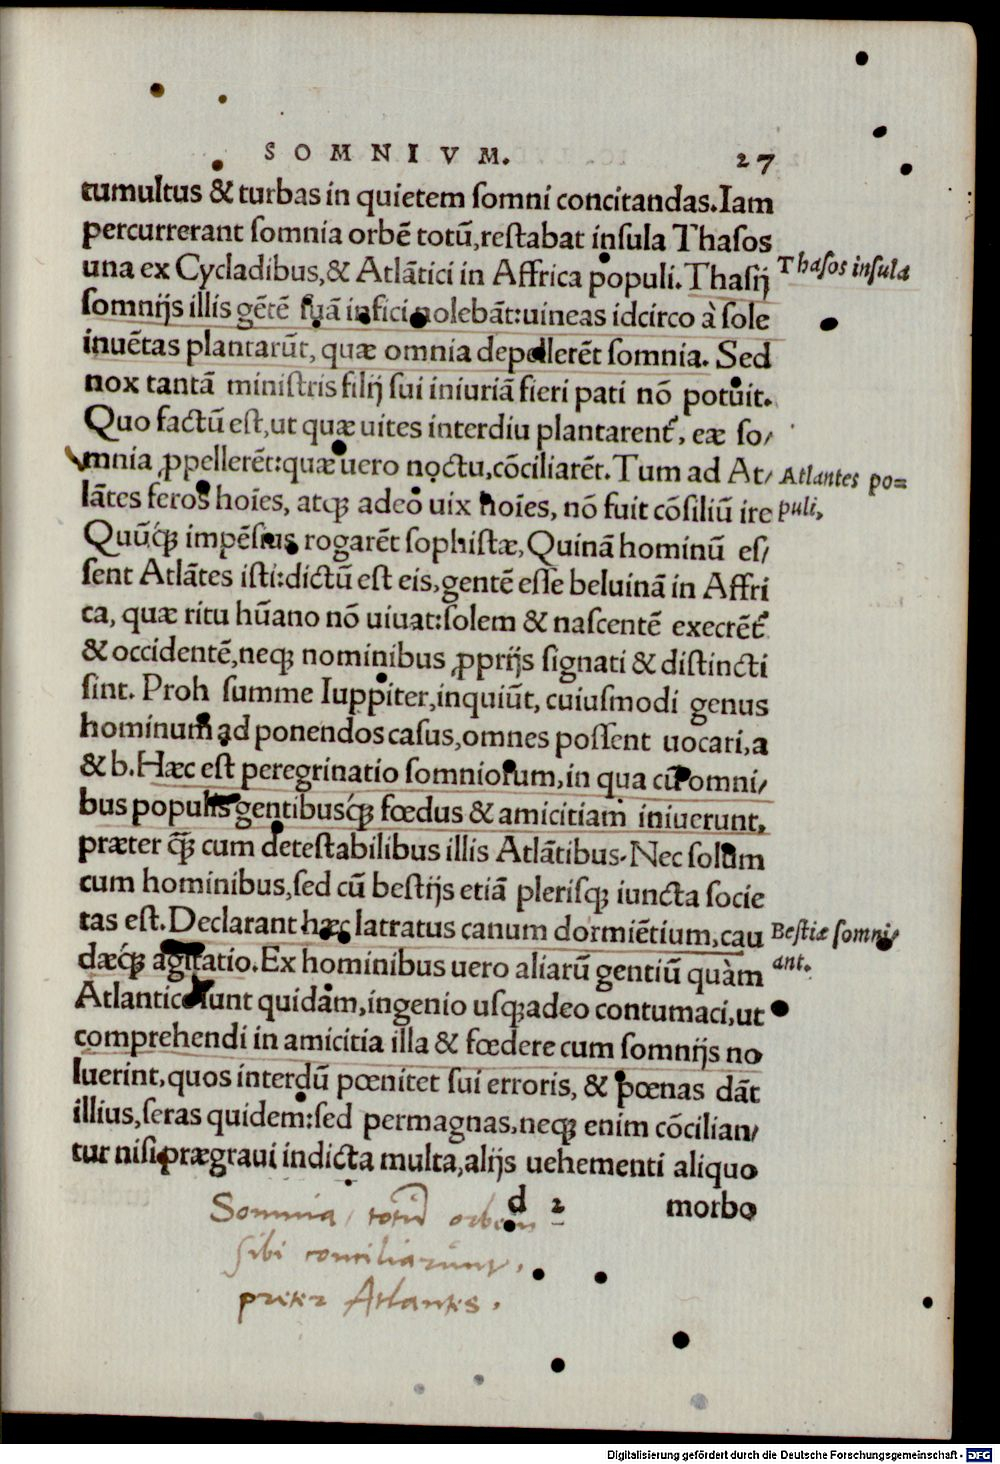 SOMNIVM. 27
tumultus & turbas in quietem ſomni concitandas. Iam
percurrerant ſomnia orbē totū, reſtabat inſula Thaſos
una ex Cycladibus, & Atlātici in Affrica populi. Thaſij
Thaſos inſula
ſomnijs illis gētē ſuā infici nolebāt: uineas idcirco à ſole
inuētas plantarūt, quæ omnia depellerēt ſomnia. Sed
nox tantā miniſtris filij ſui iniuriā fieri pati nō potuit.
Quo factū eſt, ut quæ uites interdiu plantarent᷑, eæ ſo/
mnia ꝓpellerēt: quæ uero noctu, cōciliarēt. Tum ad At/
Atlantes po=
lātes feros hoīes, atqꝫ adeo uix hoīes, nō fuit cōſiliū ire
puli,
Quūq́ꝫ impēſius rogarēt ſophiſtæ, Quinā hominū eſ/
ſent Atlātes iſti: dictū eſt eis, gentē eſſe beluinā in Affri
ca, quæ ritu hūano nō uiuat: ſolem & naſcentē execrēt᷑
& occidentē, neqꝫ nominibus ꝓprijs ſignati & diſtincti
ſint. Proh ſumme Iuppiter, inquiūt, cuiuſmodi genus
hominum ad ponendos caſus, omnes poſſent uocari, a
& b. Hæc eſt peregrinatio ſomniorum, in qua cū omni/
bus populis gentibusq́ꝫ fœdus & amicitiam iniuerunt,
præter q̄ꝫ cum deteſtabilibus illis Atlātibus. Nec ſolum
cum hominibus, ſed cū beſtijs etiā pleriſqꝫ iuncta ſocie
tas eſt. Declarant hæc latratus canum dormiētium, cau
Beſtiæ ſomni/
dæq́ꝫ agitatio. Ex hominibus uero aliarū gentiū quàm
ant.
Atlantic ſunt quidam, ingenio uſqꝫadeo contumaci, ut
comprehendi in amicitia illa & fœdere cum ſomnijs no
luerint, quos interdū pœnitet ſui erroris, & pœnas dāt
illius, ſeras quidem: ſed permagnas, neqꝫ enim cōcilian/
tur niſi prægraui indicta multa, alijs uehementi aliquo
d 2 morbo
Somnia, totū orbem
ſibi conciliarunt,
preter Atlantes.
Digitalisierung gefördert durch die Deutsche Forschungsgemeinschaft - DFG